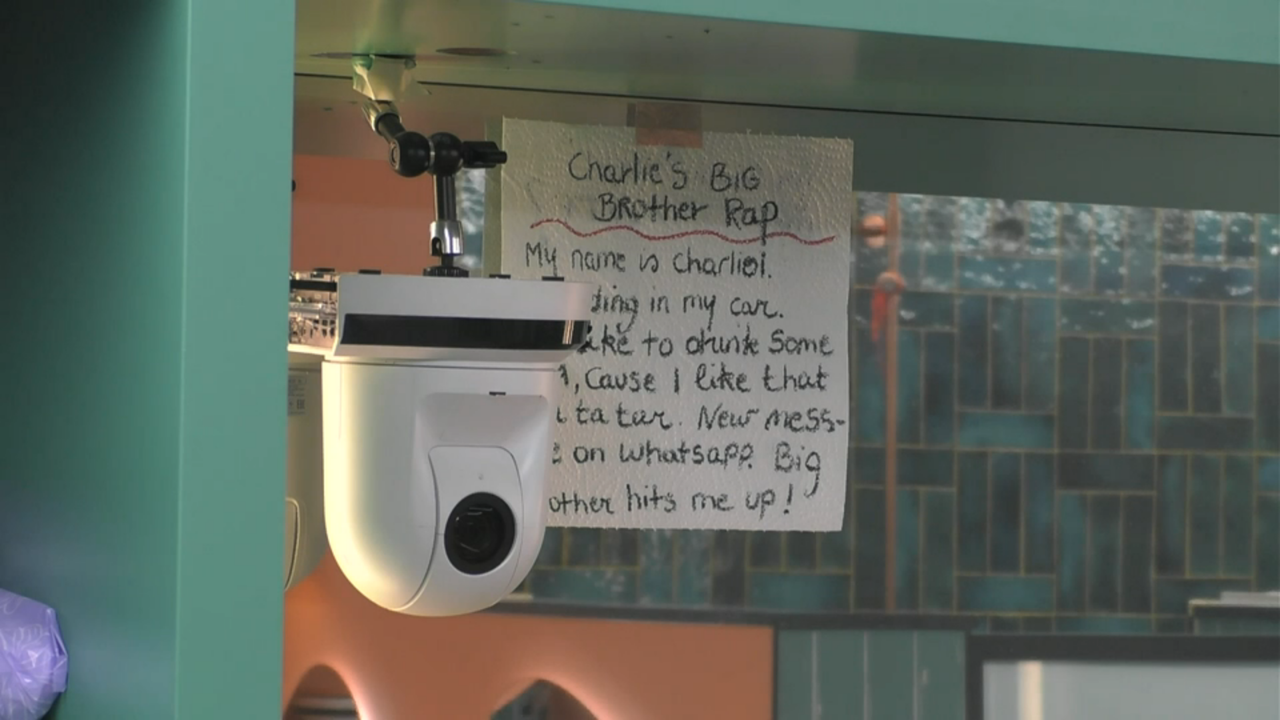 Charlie's BiG
BRother Rap
My name is Charlie!.
ding in my car.
ike to drink Some
, Cause I like that
ta tar. New mess-
on Whatsapp. Big
other hits me up!